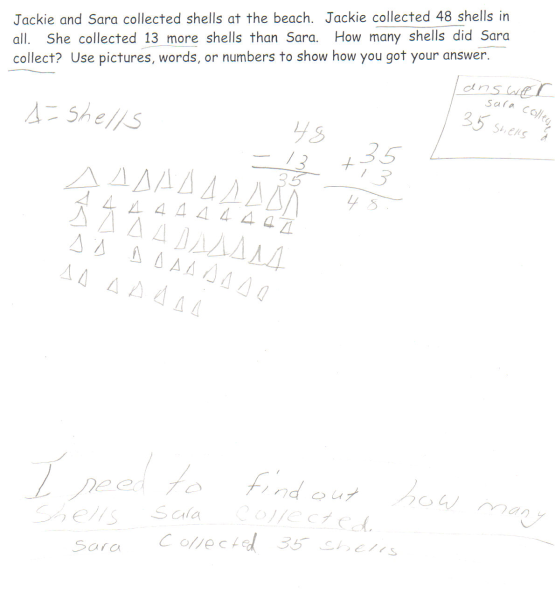 Jackie and Sara collected shells at the beach. Jackie collected 48 shells in
all. She collected 13 more shells than Sara. How many shells did Sara
collect? Use pictures, words, or numbers to show how you got your answer.
answer
Sara collected
35 shells
Δ = Shells
48
- 13
35
35
+ 13
48
I need to find out how many
Shells Sara collected.
Sara Collected 35 shells